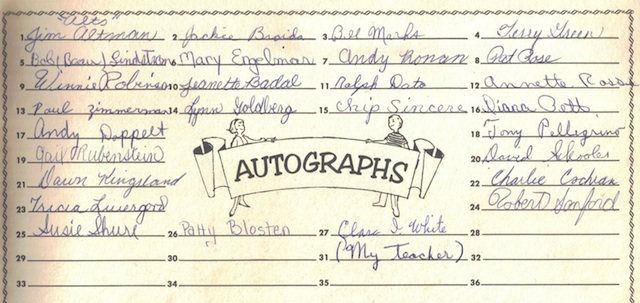 "Alts"
1. Jim Altman 2. Jackie Braida 3. Bill Marks 4. Terry Green
5. Bob (Beau) Lindstrom 6. Mary Engelmar 7. Andy Ronan 8. Pat Rose
9. Winnie Robinson 10. Jeanette Badal 11. Ralph Dato 12. Annette Rossy
13. Paul Zimmerman 14. Lynn Goldberg 15. Chip Sincere 16. Diana Botti
17. Andy Doppelt 18. Tony Pellegrino
19. Gail Rubenstein 20. David
21. Dawn Kingsland 22. Charlie Cochran
AUTOGRAPHS
23. Tricia Livergood 24. Robert Sanford
25. Susie Shure 26. Patty Blosten 27. Clara I. White 28.
29. 30. 31. (My Teacher) 32.
33. 34. 35. 36.